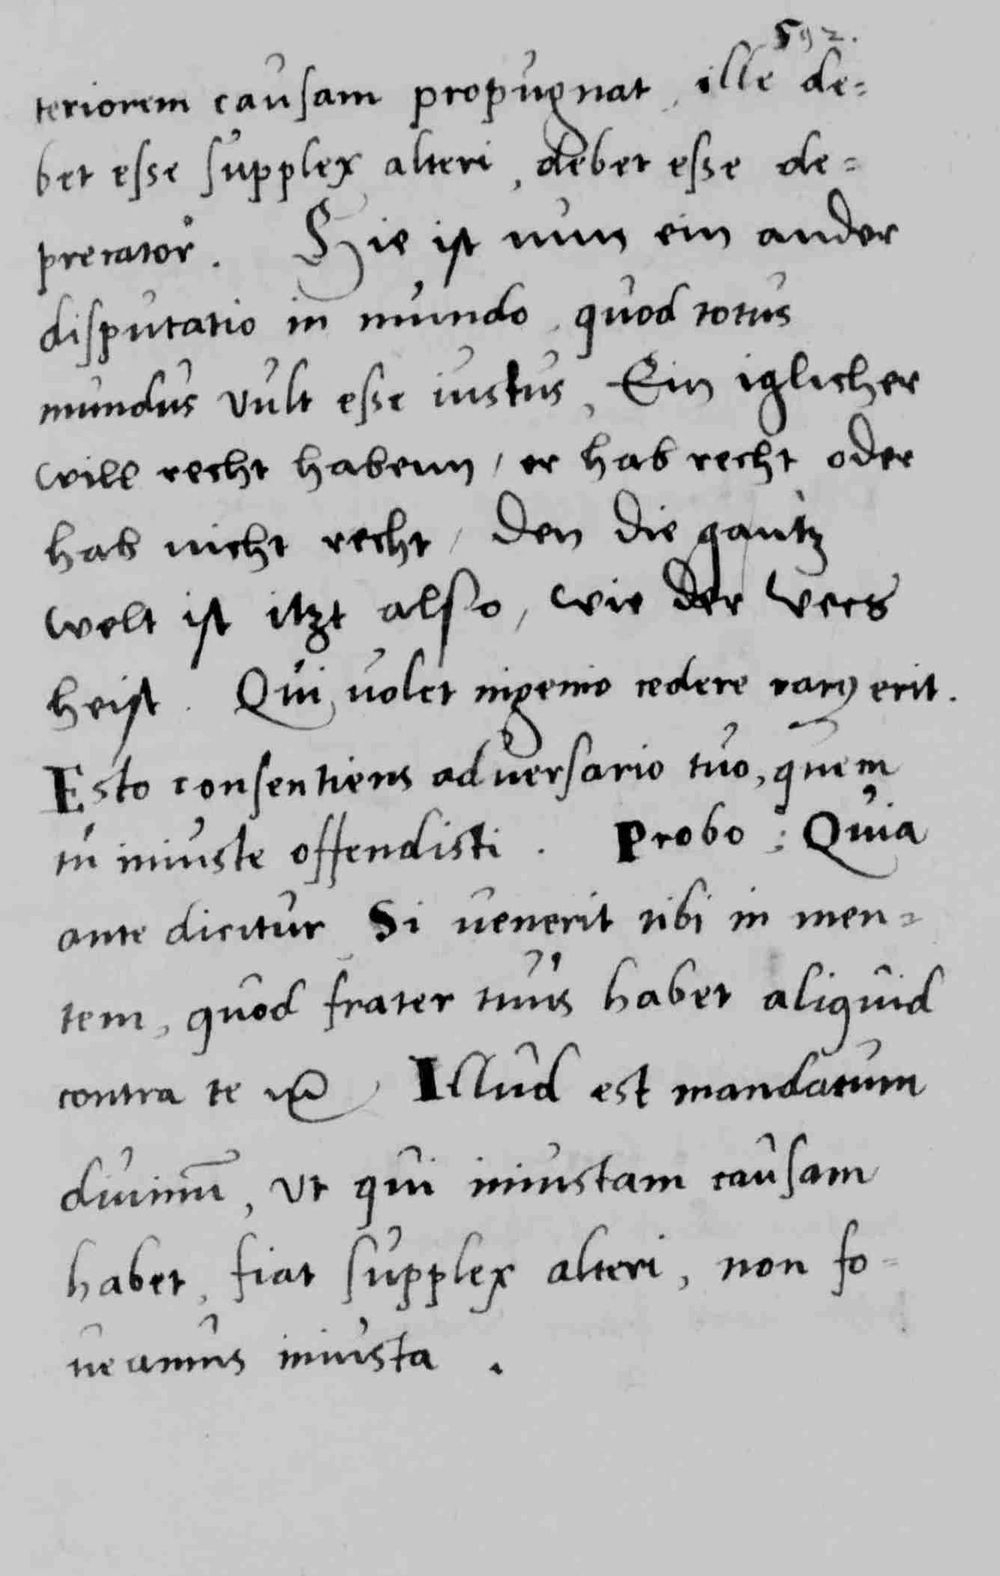 592.
teriorem causam propugnat, ille de=
bet esse supplex alteri, debet esse de=
precator. Hie ist nun ein ander
disputatio in mundo, quod totus
mundus vult esse iustus, Ein iglicher
will recht habenn, er hab recht oder
hab nicht recht, den die gantz
welt ist itzt also, wie der vers
heist. Qui volet ingenio cedere rarꝰ erit.
Esto consentiens adversario tuo, quem
tu iniuste offendisti. Probo: Quia
ante dicitur Si venerit tibi in men=
tem, quod frater tuus habet aliquid
contra te ꝛc Illud est mandatum
diuinū, ut qui iniustam causam
habet, fiat supplex alteri, non fo=
ueamus iniusta.